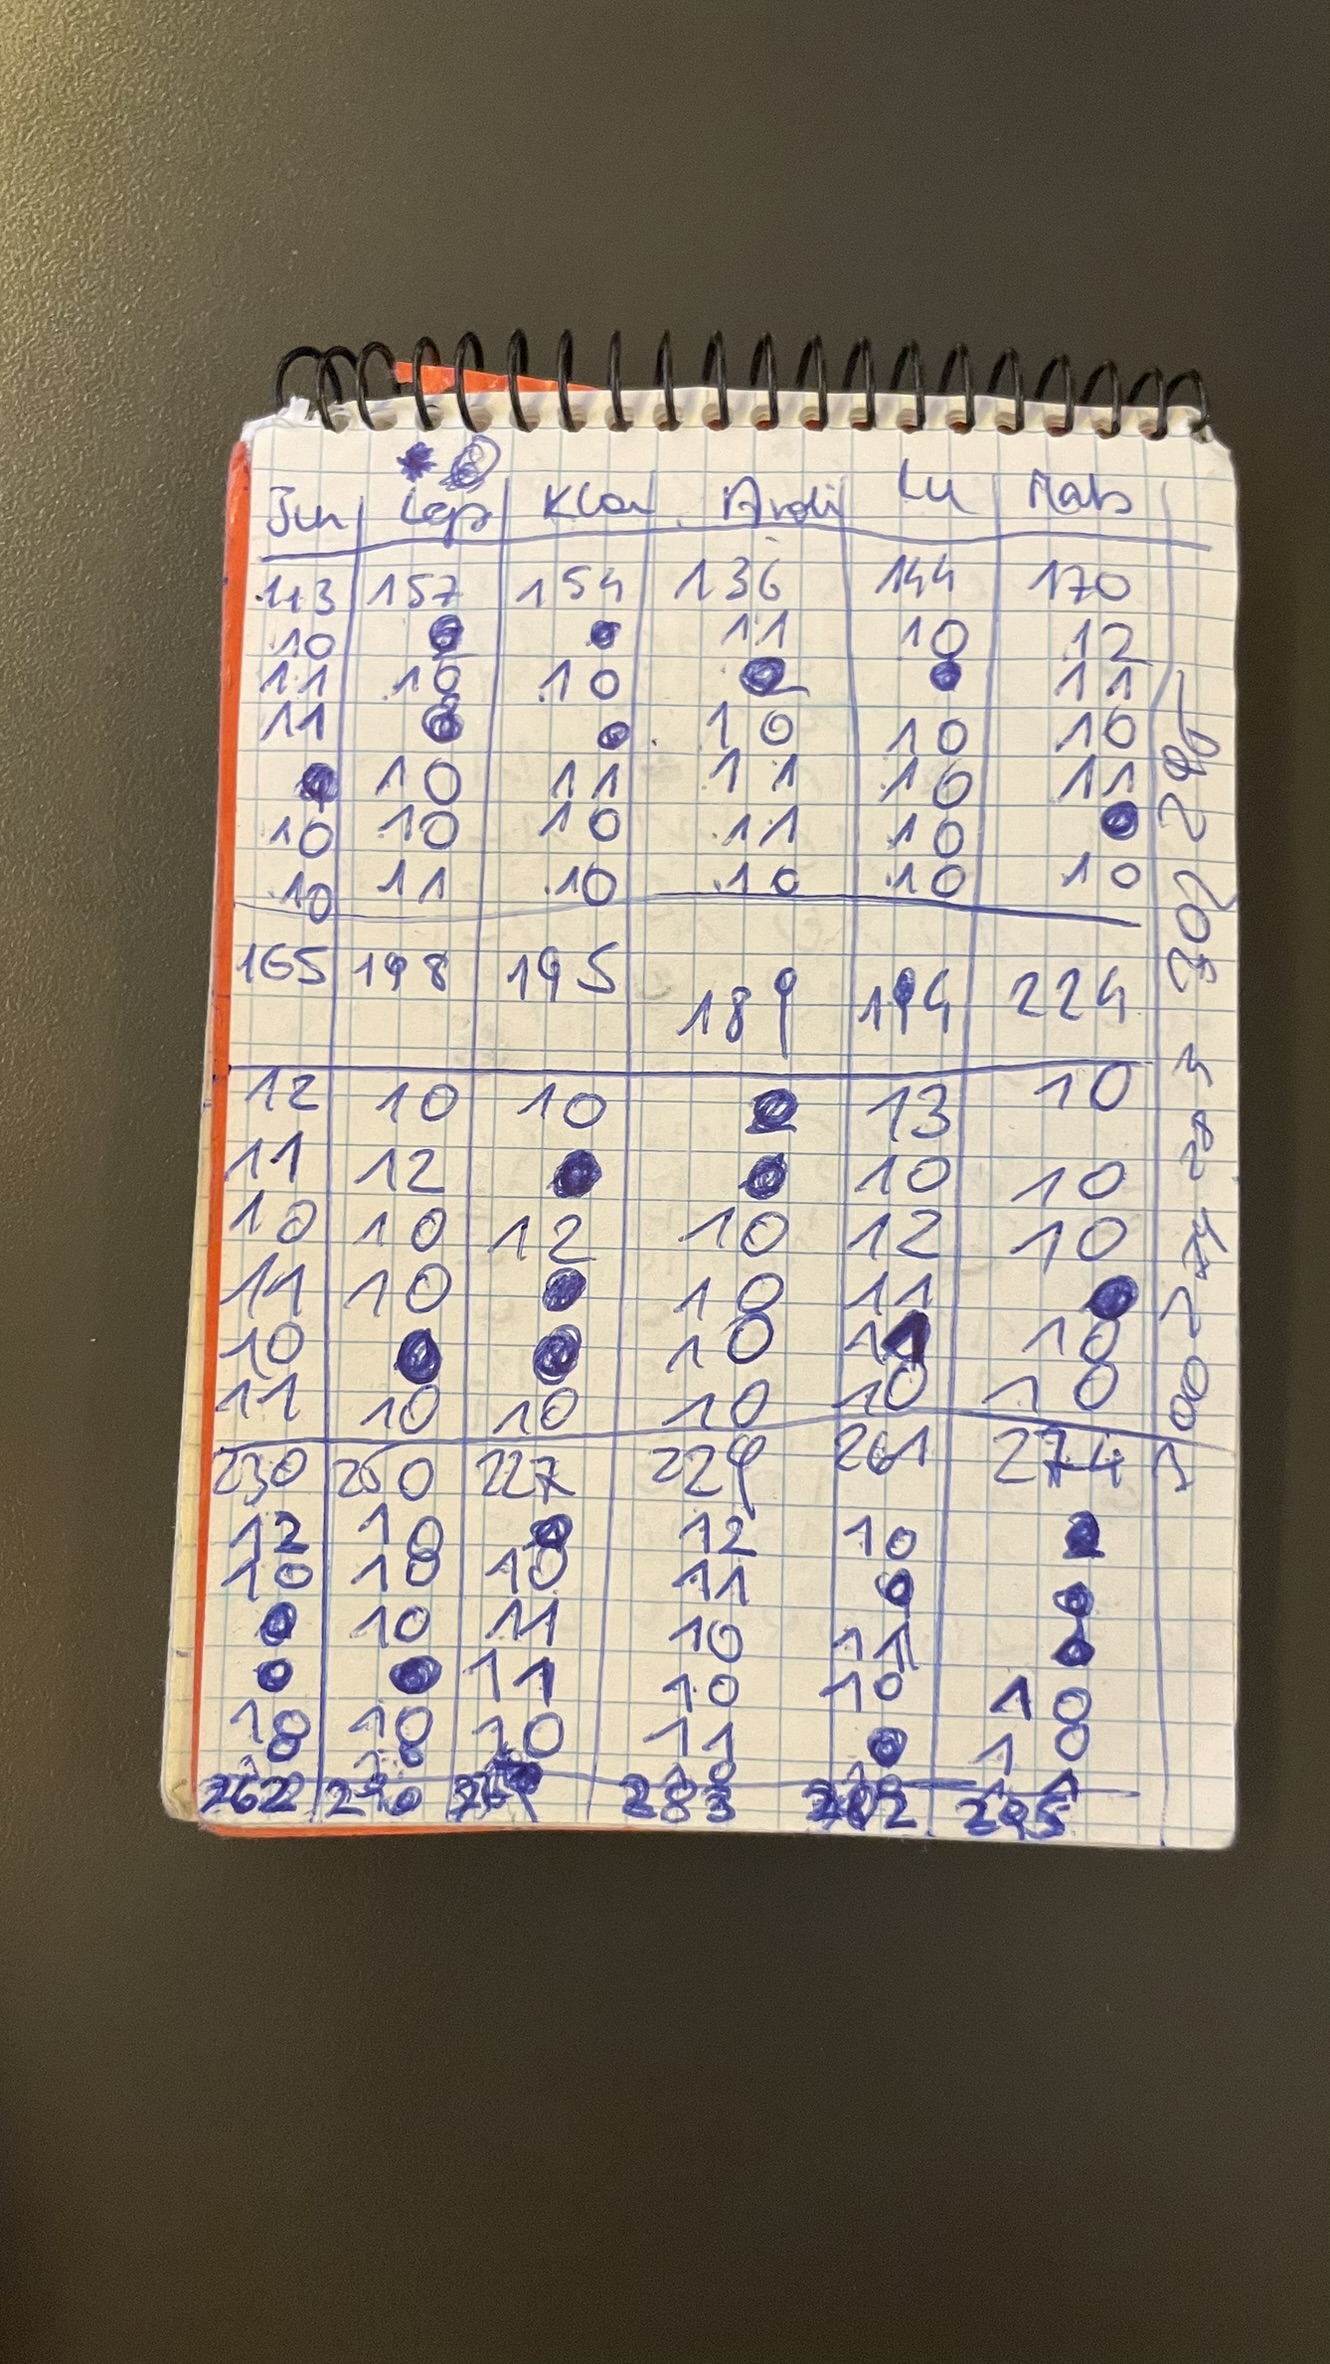 Jun Lep Klar Ardi Lu Mab
113 157 154 136 144 170
10 11 10 12
11 10 10 11
11 10 10 10
10 11 11 10 11
10 10 10 11 10
10 11 10 10 10 10
165 198 195 189 194 224
12 10 10 13 10
11 12 10 10
10 10 12 10 12 10
11 10 10 11
10 10 10
11 10 10 10 10 10
230 250 227 229 261 274
12 10 12 10
10 10 10 11
10 11 10 11
11 10 10 10
10 10 10 11 10
10 10 11
262 290 283 295
302 295
274